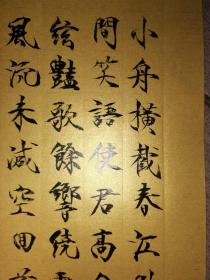 小舟橫截春江
間笑語使君高
絃豔歌餘響繞
風流未減空回